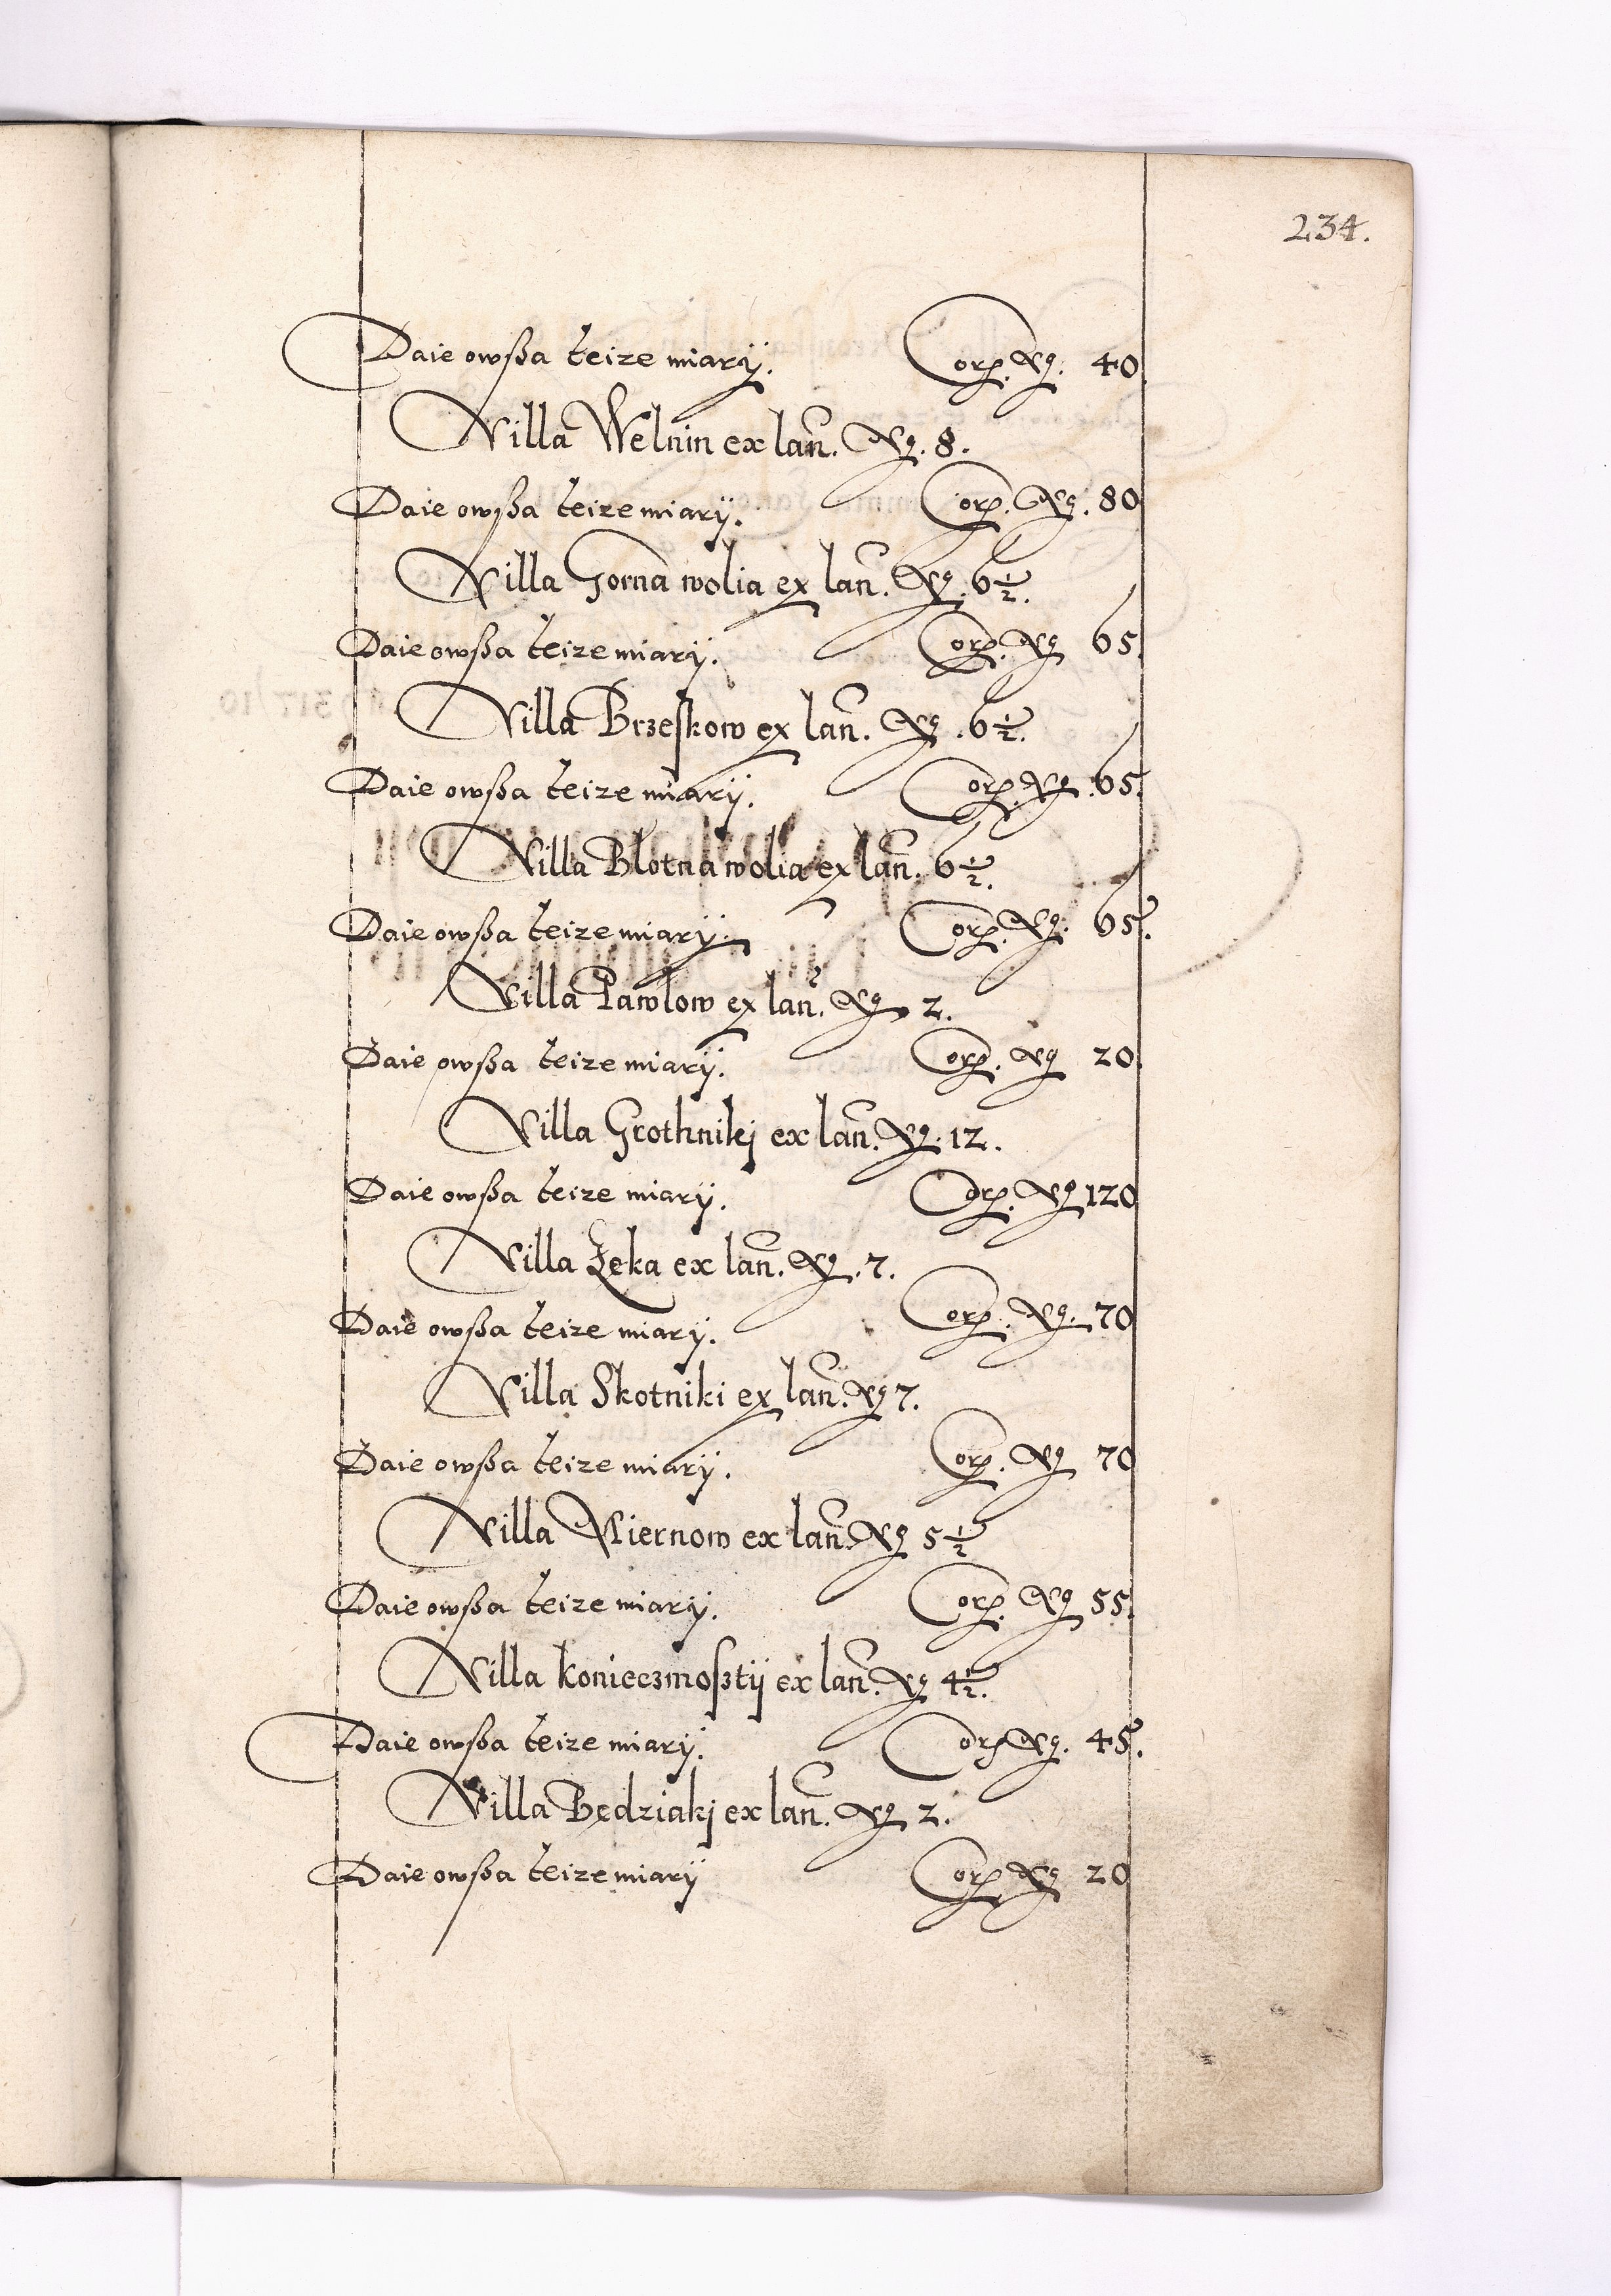 234.
Daie owßa teize miarÿ. Corp. Nọ. 40
Villa Welnin ex lan̄. Nọ. 8.
Daie owßa teize miarÿ. Corp. Nọ. 80
Villa Gorna wolia ex lan̄. Nọ. 6½.
Daie owßa teize miarÿ. Corp. Nọ 65
Villa Brzeskow ex lan̄. Nọ. 6½.
Daie owßa teize miarÿ. Corp. Nọ. 65.
Villa Błotna wolia ex lan̄. 6½.
Daie owßa teize miarÿ. Corp. Nọ. 65.
Villa Pawlow ex lan̄. Nọ 2.
Daie owßa teize miarÿ. Corp. Nọ 20.
Villa Grothnikj ex lan̄. Nọ. 12.
Daie owßa teize miarÿ. Corp. Nọ 120
Villa Łęka ex lan̄. Nọ. 7.
Daie owßa teize miarÿ. Corp. Nọ. 70
Villa Skotniki ex lan̄. Nọ 7.
Daie owßa teize miarÿ. Corp. Nọ 70
Villa Piernow ex lan̄. Nọ 5½
Daie owßa teize miarÿ. Corp. Nọ 55.
Villa konieczmosztÿ ex lan̄. Nọ 4½.
Daie owßa teize miarÿ. Corp Nọ. 45.
Villa Będziakj ex lan̄. Nọ 2.
Daie owßa teize miarÿ Corp Nọ 20